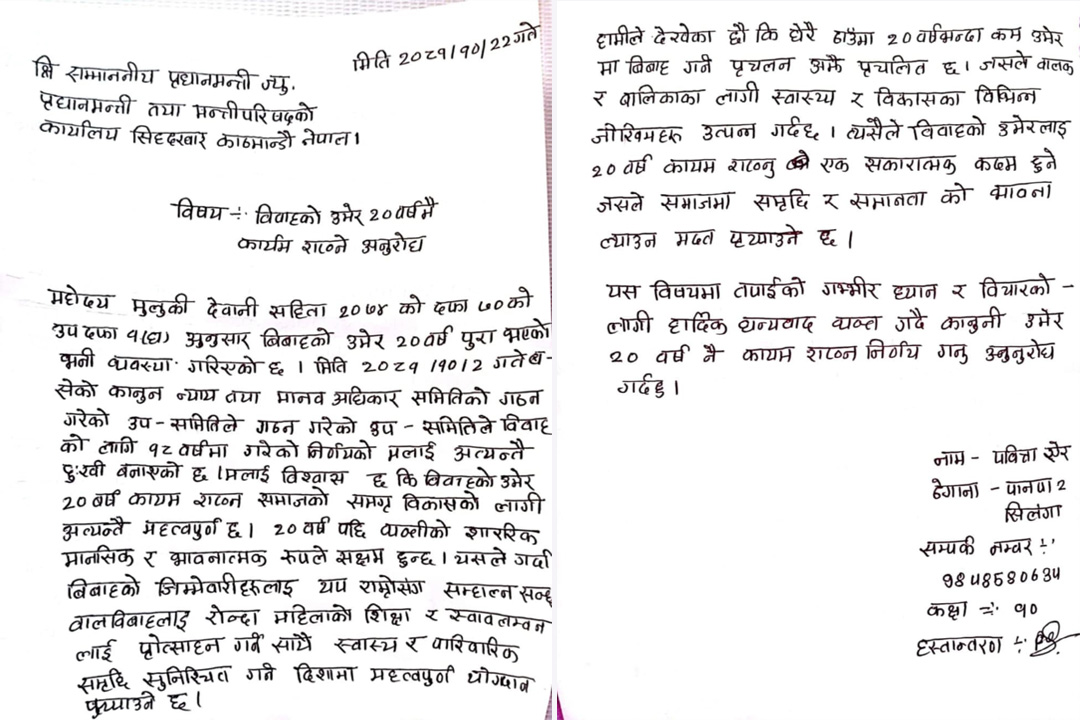 मिति २०८१/१०/22गते
श्रि सम्माननीय प्रधानमन्त्री ज्यु.
प्रधानमन्ती तथा मन्त्तीपरिषदको
कार्यालय सिहदरवार काठमान्डौ नेपाल।
विषय ÷ विवाहको उमेर 20 वर्षमै
कार्यम राख्ने अनुरोध
महोदय मुलुकी देवानी सहिता २०७४ को दफा ७० को
उप दफा १(घ) अनुसार बिबाहको उमेर 20 वर्ष पुरा भएको
भनी व्यवस्था गरिएको छ । मिति २०८१ /१०/2 गते ब-
सेको कानुन न्याय तथा मानव अधिकार समितिको गठन
गरेको उप-समितिले गठन गरेको उप-समितिले विवाह
को लागि १८ वर्षमा गरेको निर्णयको मलाई अत्यन्तै
दुःखी बनाएको छ । मलाई विश्वास छ कि बिवाहको उमेर
20 बर्ष कायम राख्न समाजको समग्र विकासको लागी
अत्यन्तै महत्वपुर्ण छ । 20 वर्ष पछि व्यक्तीको शारिरिक
मानसिक र भावनात्मक रुपले सक्षम हुन्छ । यसले गर्दा
बिबाहको जिम्मेवारीहरुलाइ थप राम्रोसंग सम्हाल्न सक्छ
वालविबाहलाइ रोक्दा महिलाको शिक्षा र स्वावलम्वन
लाई प्रोत्साहन गर्ने साथै स्वास्थ्य र पारिवारिक
समृद्धि सुनिस्चित गर्ने दिशामा महत्वपुर्ण योगदान
पुर्‍याउने छ ।
हामीले देखेका छौ कि धेरै ठाउँमा 20 वर्षभन्दा कम उमेर
मा बिबाह गर्ने प्रचलन अझै प्रचलित छ । जसले वालक
र बालिकाका लागी स्वास्थ्य र विकासका विभिन्न
जोखिमहरु उत्पन्न गर्दछ । त्यसैले विवाहको उमेरलाइ
20 वर्ष कायम राख्नु एक सकारात्मक कदम हुने
जसले समाजमा समृद्धि र समानता को भावना
ल्याउन मदत पुर्‍याउने छ ।
यस विषयमा तपाईको गम्भीर ध्यान र विचारको -
लागी हार्दिक धन्यवाद व्यक्त गर्दै कानुनी उमेर
20 वर्ष नै कायम राख्न निर्णय गर्नु अनुनुरोध
गर्दछु ।
नाम - पवित्रा सेर
ठेगाना - पानपा 2
सिलंगा
सम्पर्क नम्वर ÷
9848580634
कक्षा ÷ १०
हस्तान्तरण ÷